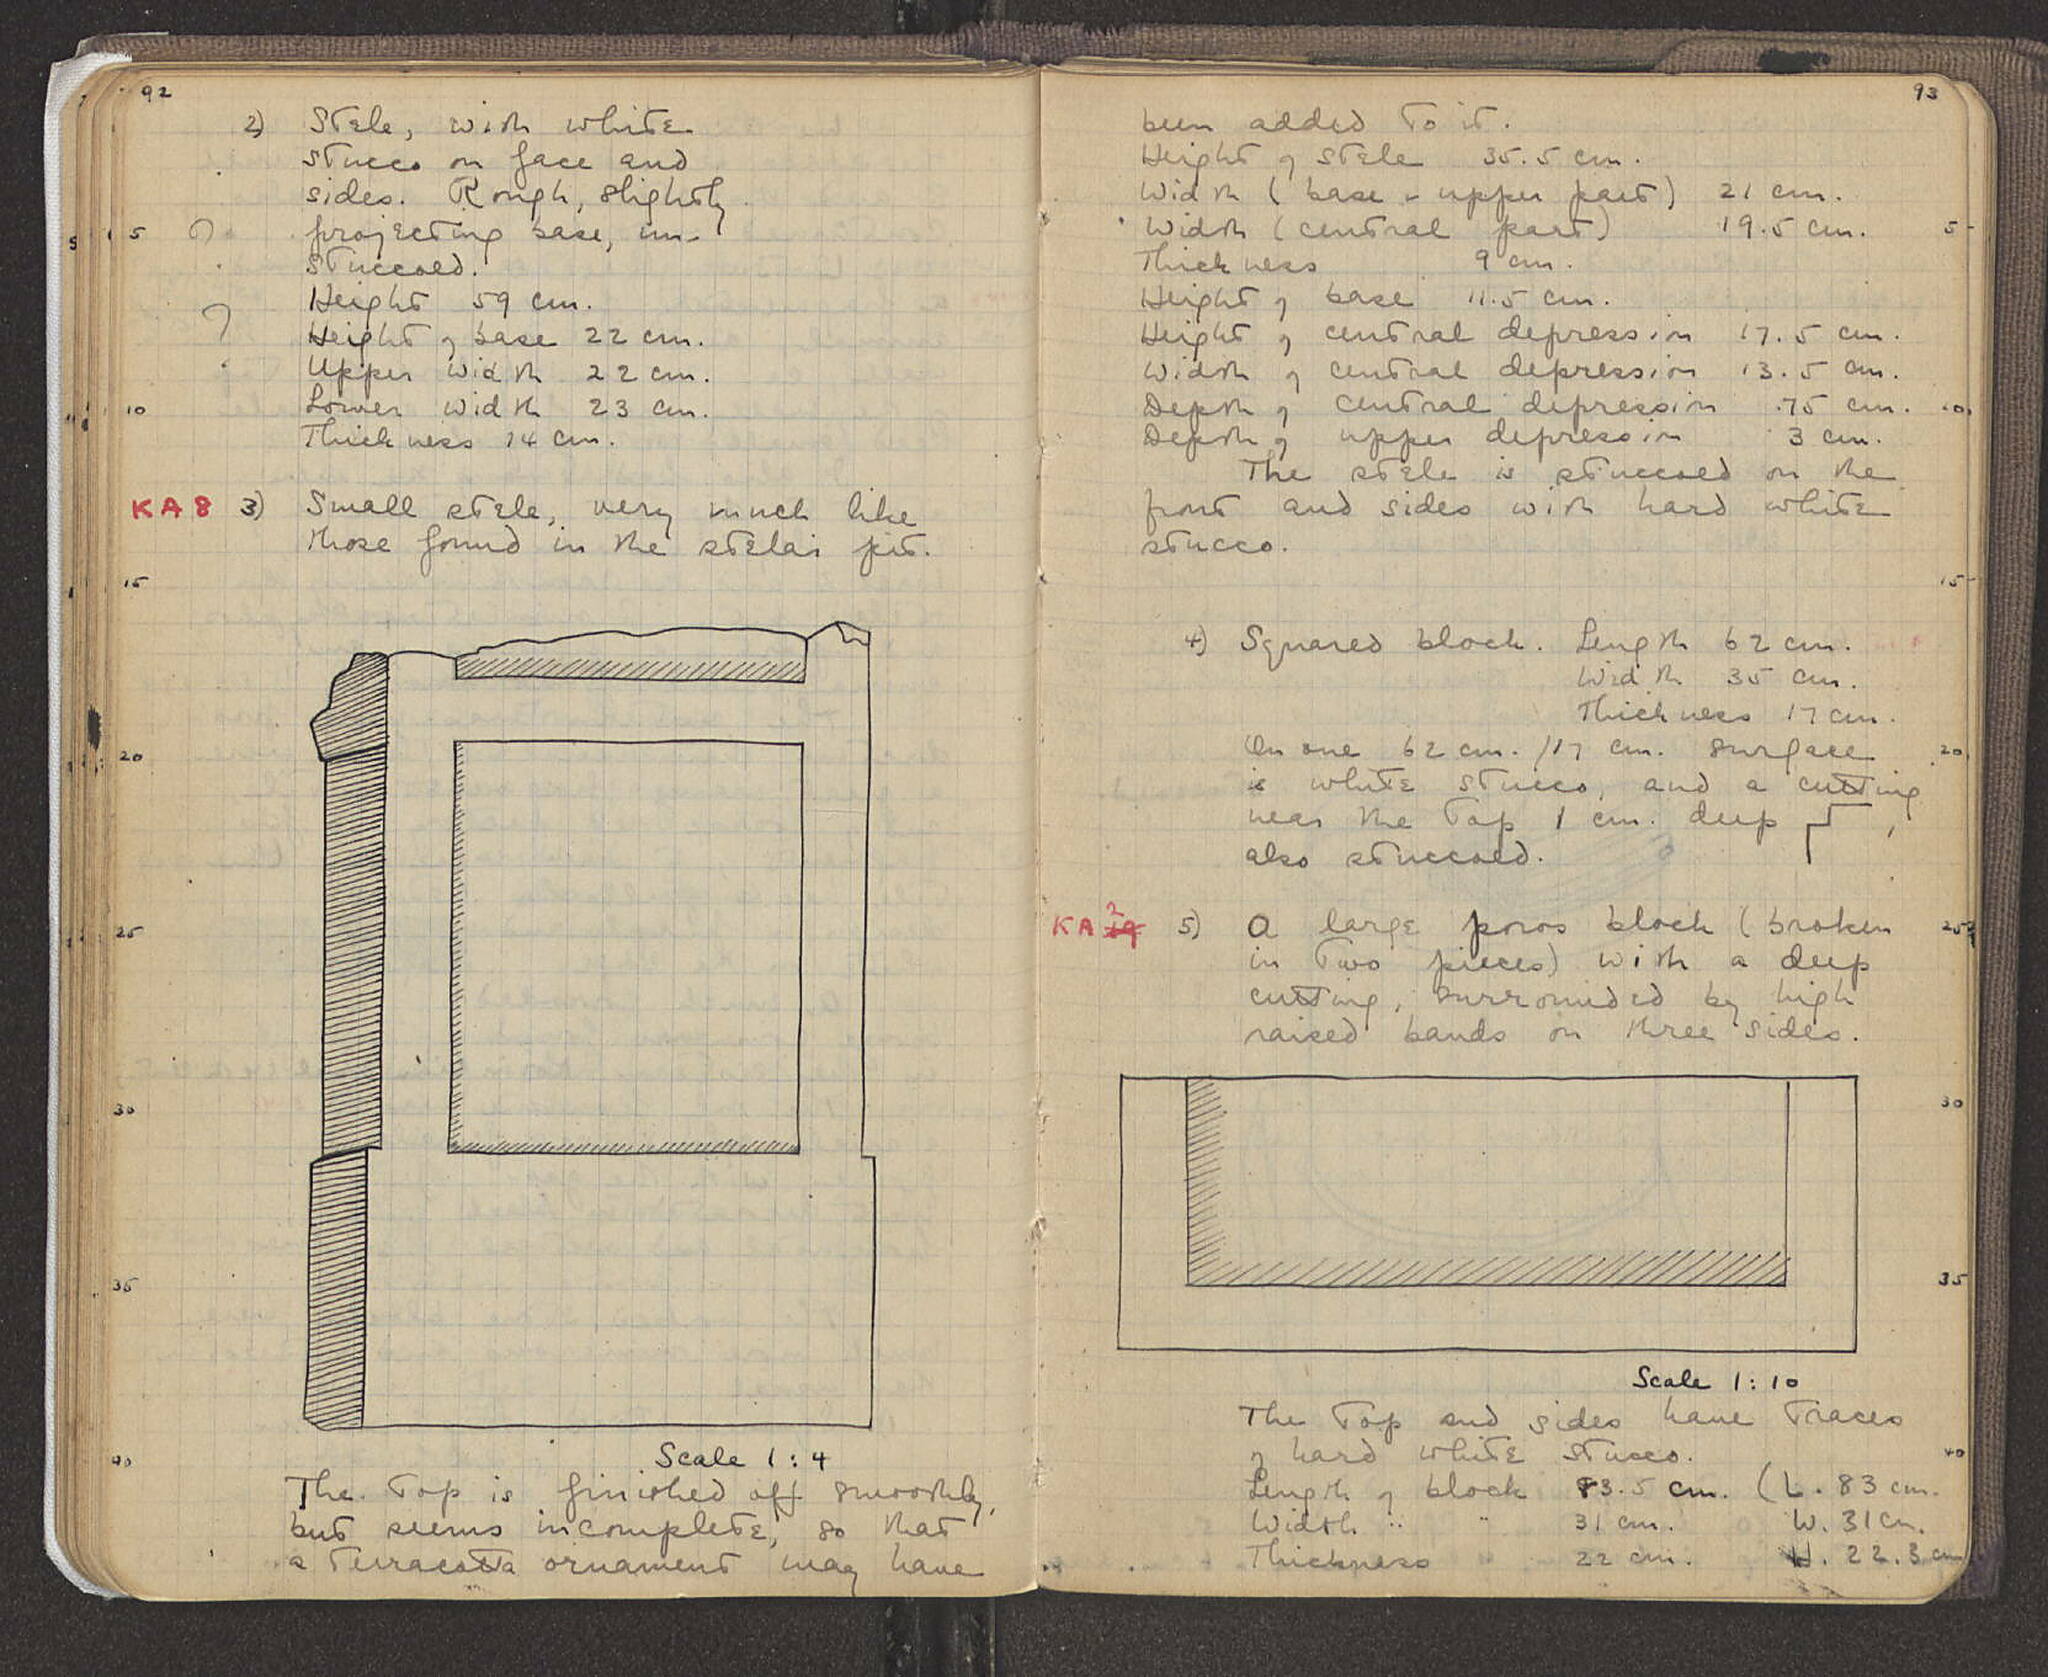 92
2) Stele, with white
stucco on face and
sides. Rough, slightly
5 ? projecting base, un-
stuccoed.
Height 59 cm.
? Height of base 22 cm.
Upper width 22 cm.
10 Lower width 23 cm.
Thickness 14 cm.
KA 8 3) Small stele, very much like
those found in the stelai pit.
15
20
25
30
35
Scale 1:4
40
The top is finished off smoothly,
but seems incomplete, so that
a terracotta ornament may have
93
been added to it.
Height of stele 35.5 cm.
Width (base - upper part) 21 cm.
Width (central part) 19.5 cm. 5
Thickness 9 cm.
Height of base 11.5 cm.
Height of central depression 17.5 cm.
Width of central depression 13.5 cm.
Depth of central depression .75 cm. 10
Depth of upper depression .3 cm.
The stele is stuccoed on the
front and sides with hard white
stucco.
15
4) Squared block. Length 62 cm.
Width 35 cm.
Thickness 17 cm.
On one 62 cm./17 cm. surface 20
is white stucco, and a cutting
near the top 1 cm. deep ,
also stuccoed.
KA 2 5) A large poros block (broken 25
in two pieces) with a deep
cutting, surrounded by high
raised bands on three sides.
30
35
Scale 1:10
The top and sides have traces
of hard white stucco. 40
Length of block 83.5 cm. (L. 83 cm.
Width " " 31 cm. W. 31 cm.
Thickness " 22 cm. H. 22.3 cm